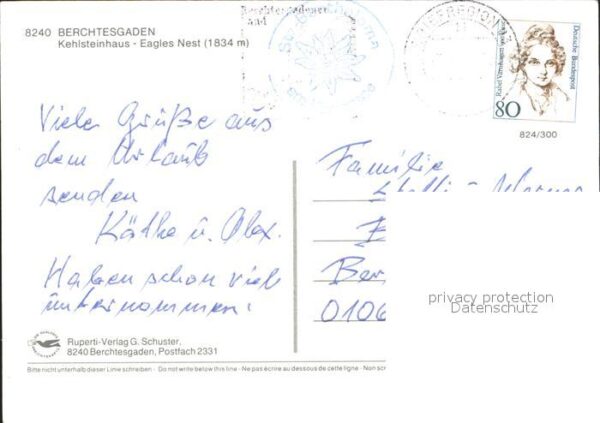 8240 BERCHTESGADEN
Kehlsteinhaus - Eagles Nest (1834 m)
Berchtesgadener
Land
Rahel Varnhagen von Ense
Deutsche Bundespost
80
824/300
Viele Grüße aus
dem Urlaub
senden
Käthe u. Alex.
Haben schon viel
unternommen!
Familie
Ber
0106
privacy protection
Datenschutz
Ruperti-Verlag G. Schuster,
8240 Berchtesgaden, Postfach 2331
Bitte nicht unterhalb dieser Linie schreiben - Do not write below this line - Ne pas écrire au dessous de cette ligne - Non scr